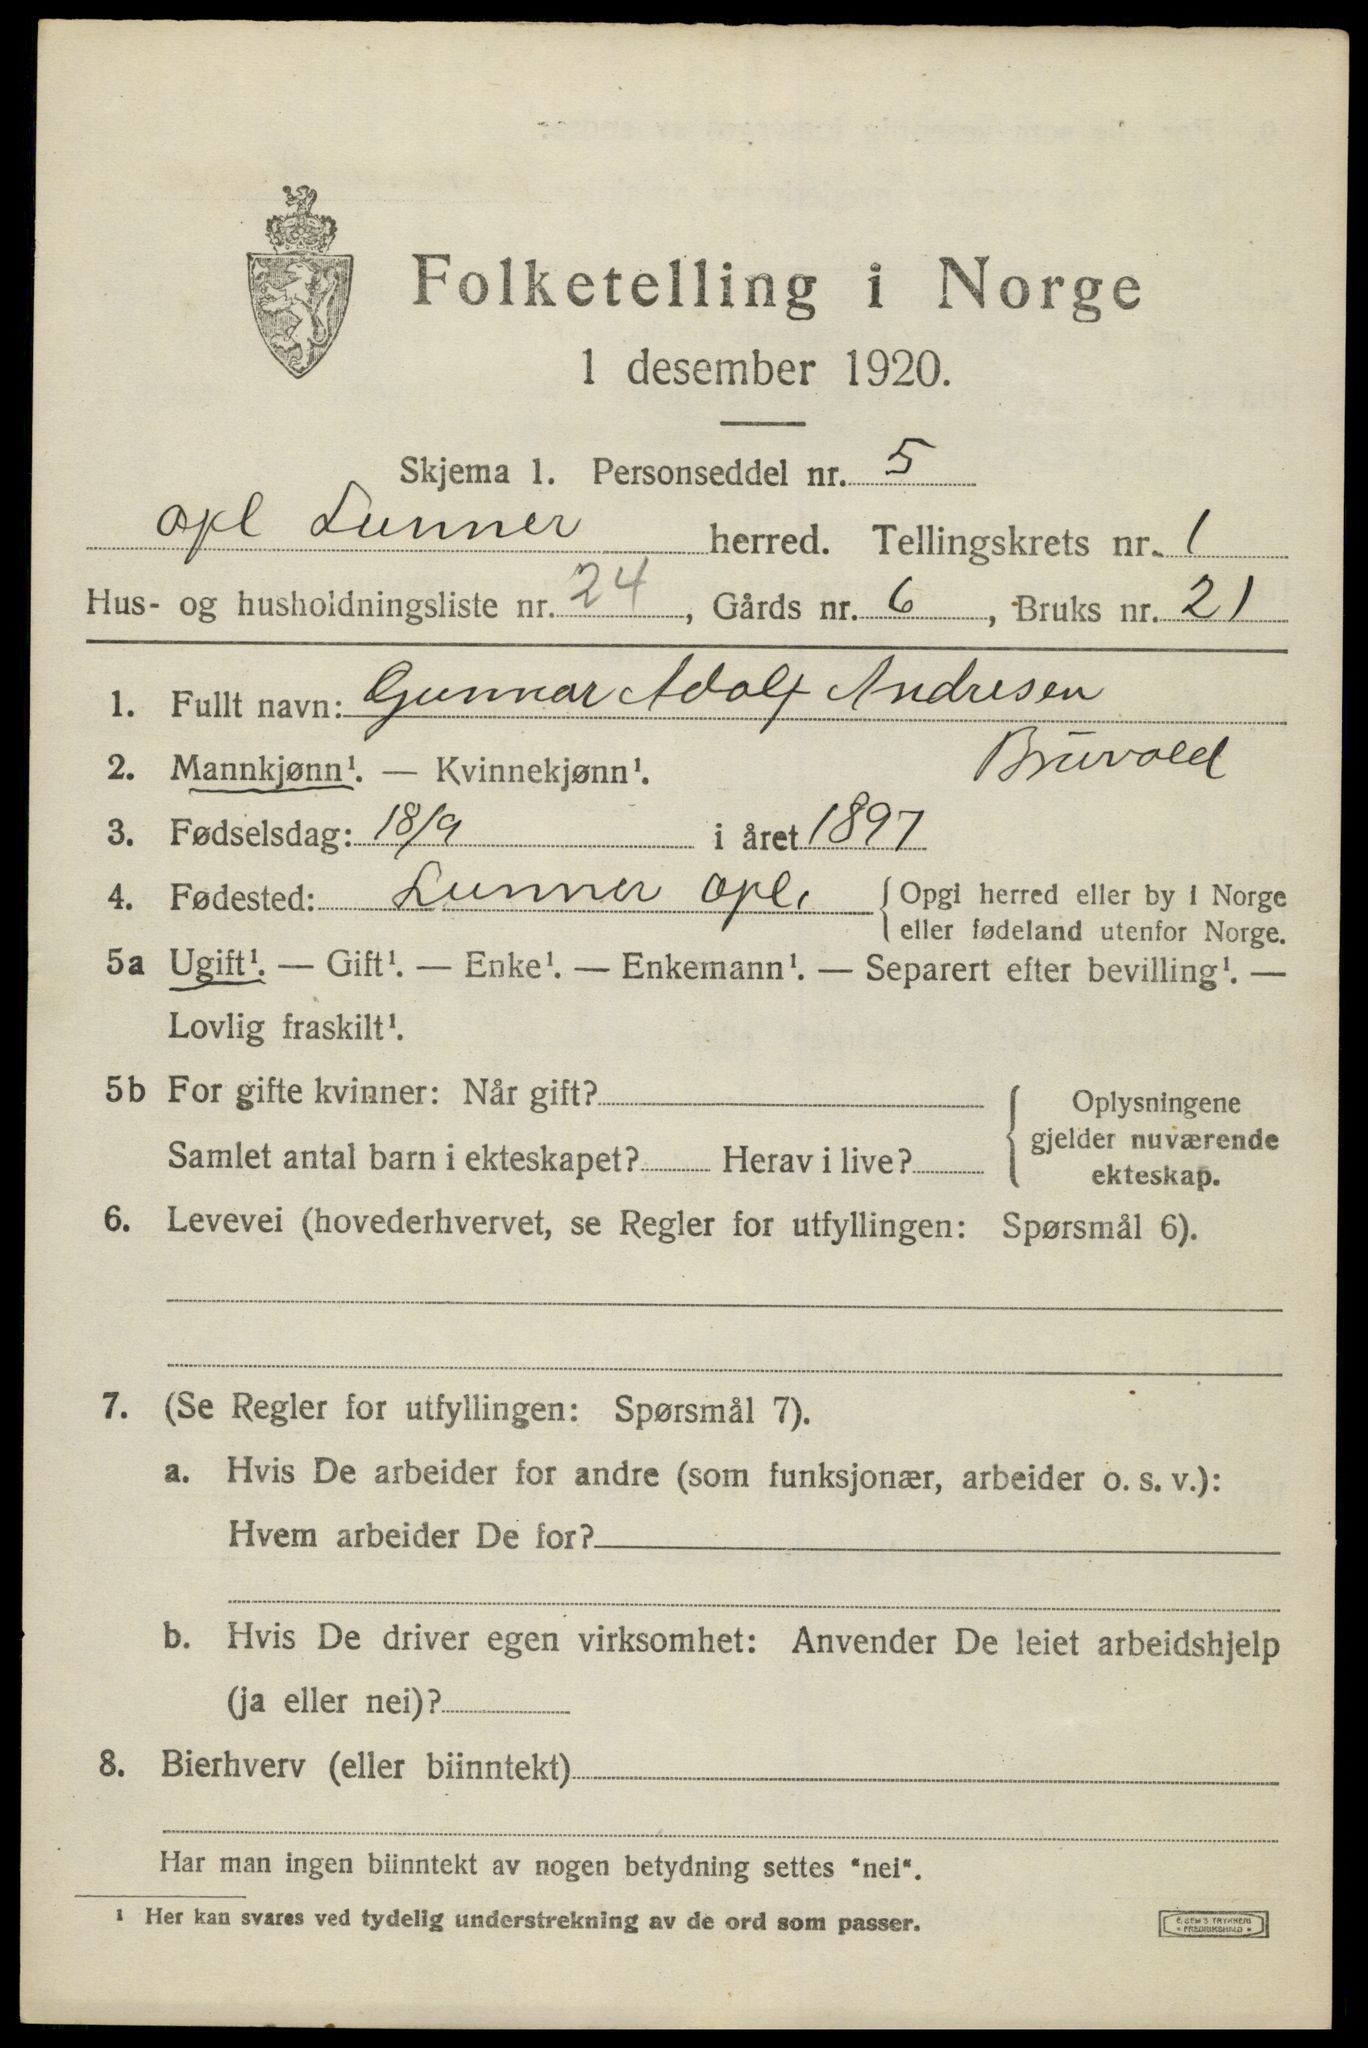 Folketelling i Norge
1 desember 1920.
Skjema 1. Personseddel nr. 5
opl Lunner herred. Tellingskrets nr. 1
Hus- og husholdningsliste nr. 24, Gårds nr. 6, Bruks nr. 21
1. Fullt navn: Gunnar Adolf Andresen
Bruvold
2. Mannkjønn¹. — Kvinnekjønn¹.
3. Fødselsdag: 18/9 i året 1897
4. Fødested: Lunner opl. {Opgi herred eller by i Norge
eller fødeland utenfor Norge.
5a Ugift¹. — Gift¹. — Enke¹. — Enkemann¹. — Separert efter bevilling¹. —
Lovlig fraskilt¹.
5b For gifte kvinner: Når gift?
Samlet antal barn i ekteskapet? Herav i live?
{Oplysningene
gjelder nuværende
ekteskap.
6. Levevei (hovederhvervet, se Regler for utfyllingen: Spørsmål 6).
7. (Se Regler for utfyllingen: Spørsmål 7).
a. Hvis De arbeider for andre (som funksjonær, arbeider o. s. v.):
Hvem arbeider De for?
b. Hvis De driver egen virksomhet: Anvender De leiet arbeidshjelp
(ja eller nei)?
8. Bierhverv (eller biinntekt)
Har man ingen biinntekt av nogen betydning settes "nei".
¹ Her kan svares ved tydelig understrekning av de ord som passer.
E. SEM'S TRYKKERI
FREDRIKSHALD